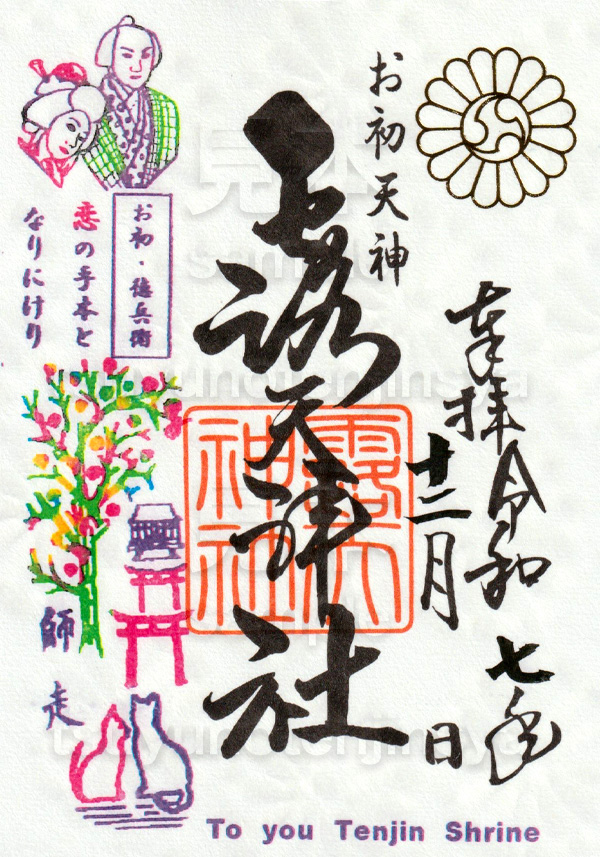 奉拝
令和七年
十二月 日
お初天神
露天神社
露天
神社
お初・徳兵衛
恋の手本と
なりにけり
師走
To you Tenjin Shrine
見本
sample
tsuyunotenjinsya
tsuyunotenjinsya